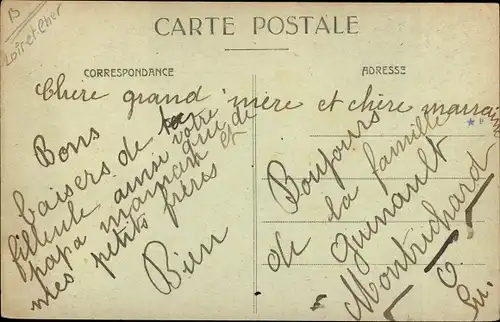 B
Loir et Cher
CARTE POSTALE
CORRESPONDANCE
ADRESSE
Chère grand'mère et chère marraine
Bons
baisers de votre
filleule ainsi que de
papa maman et
mes petits frères
Bien
Bonjours
de la famille
Guenault
Montrichard